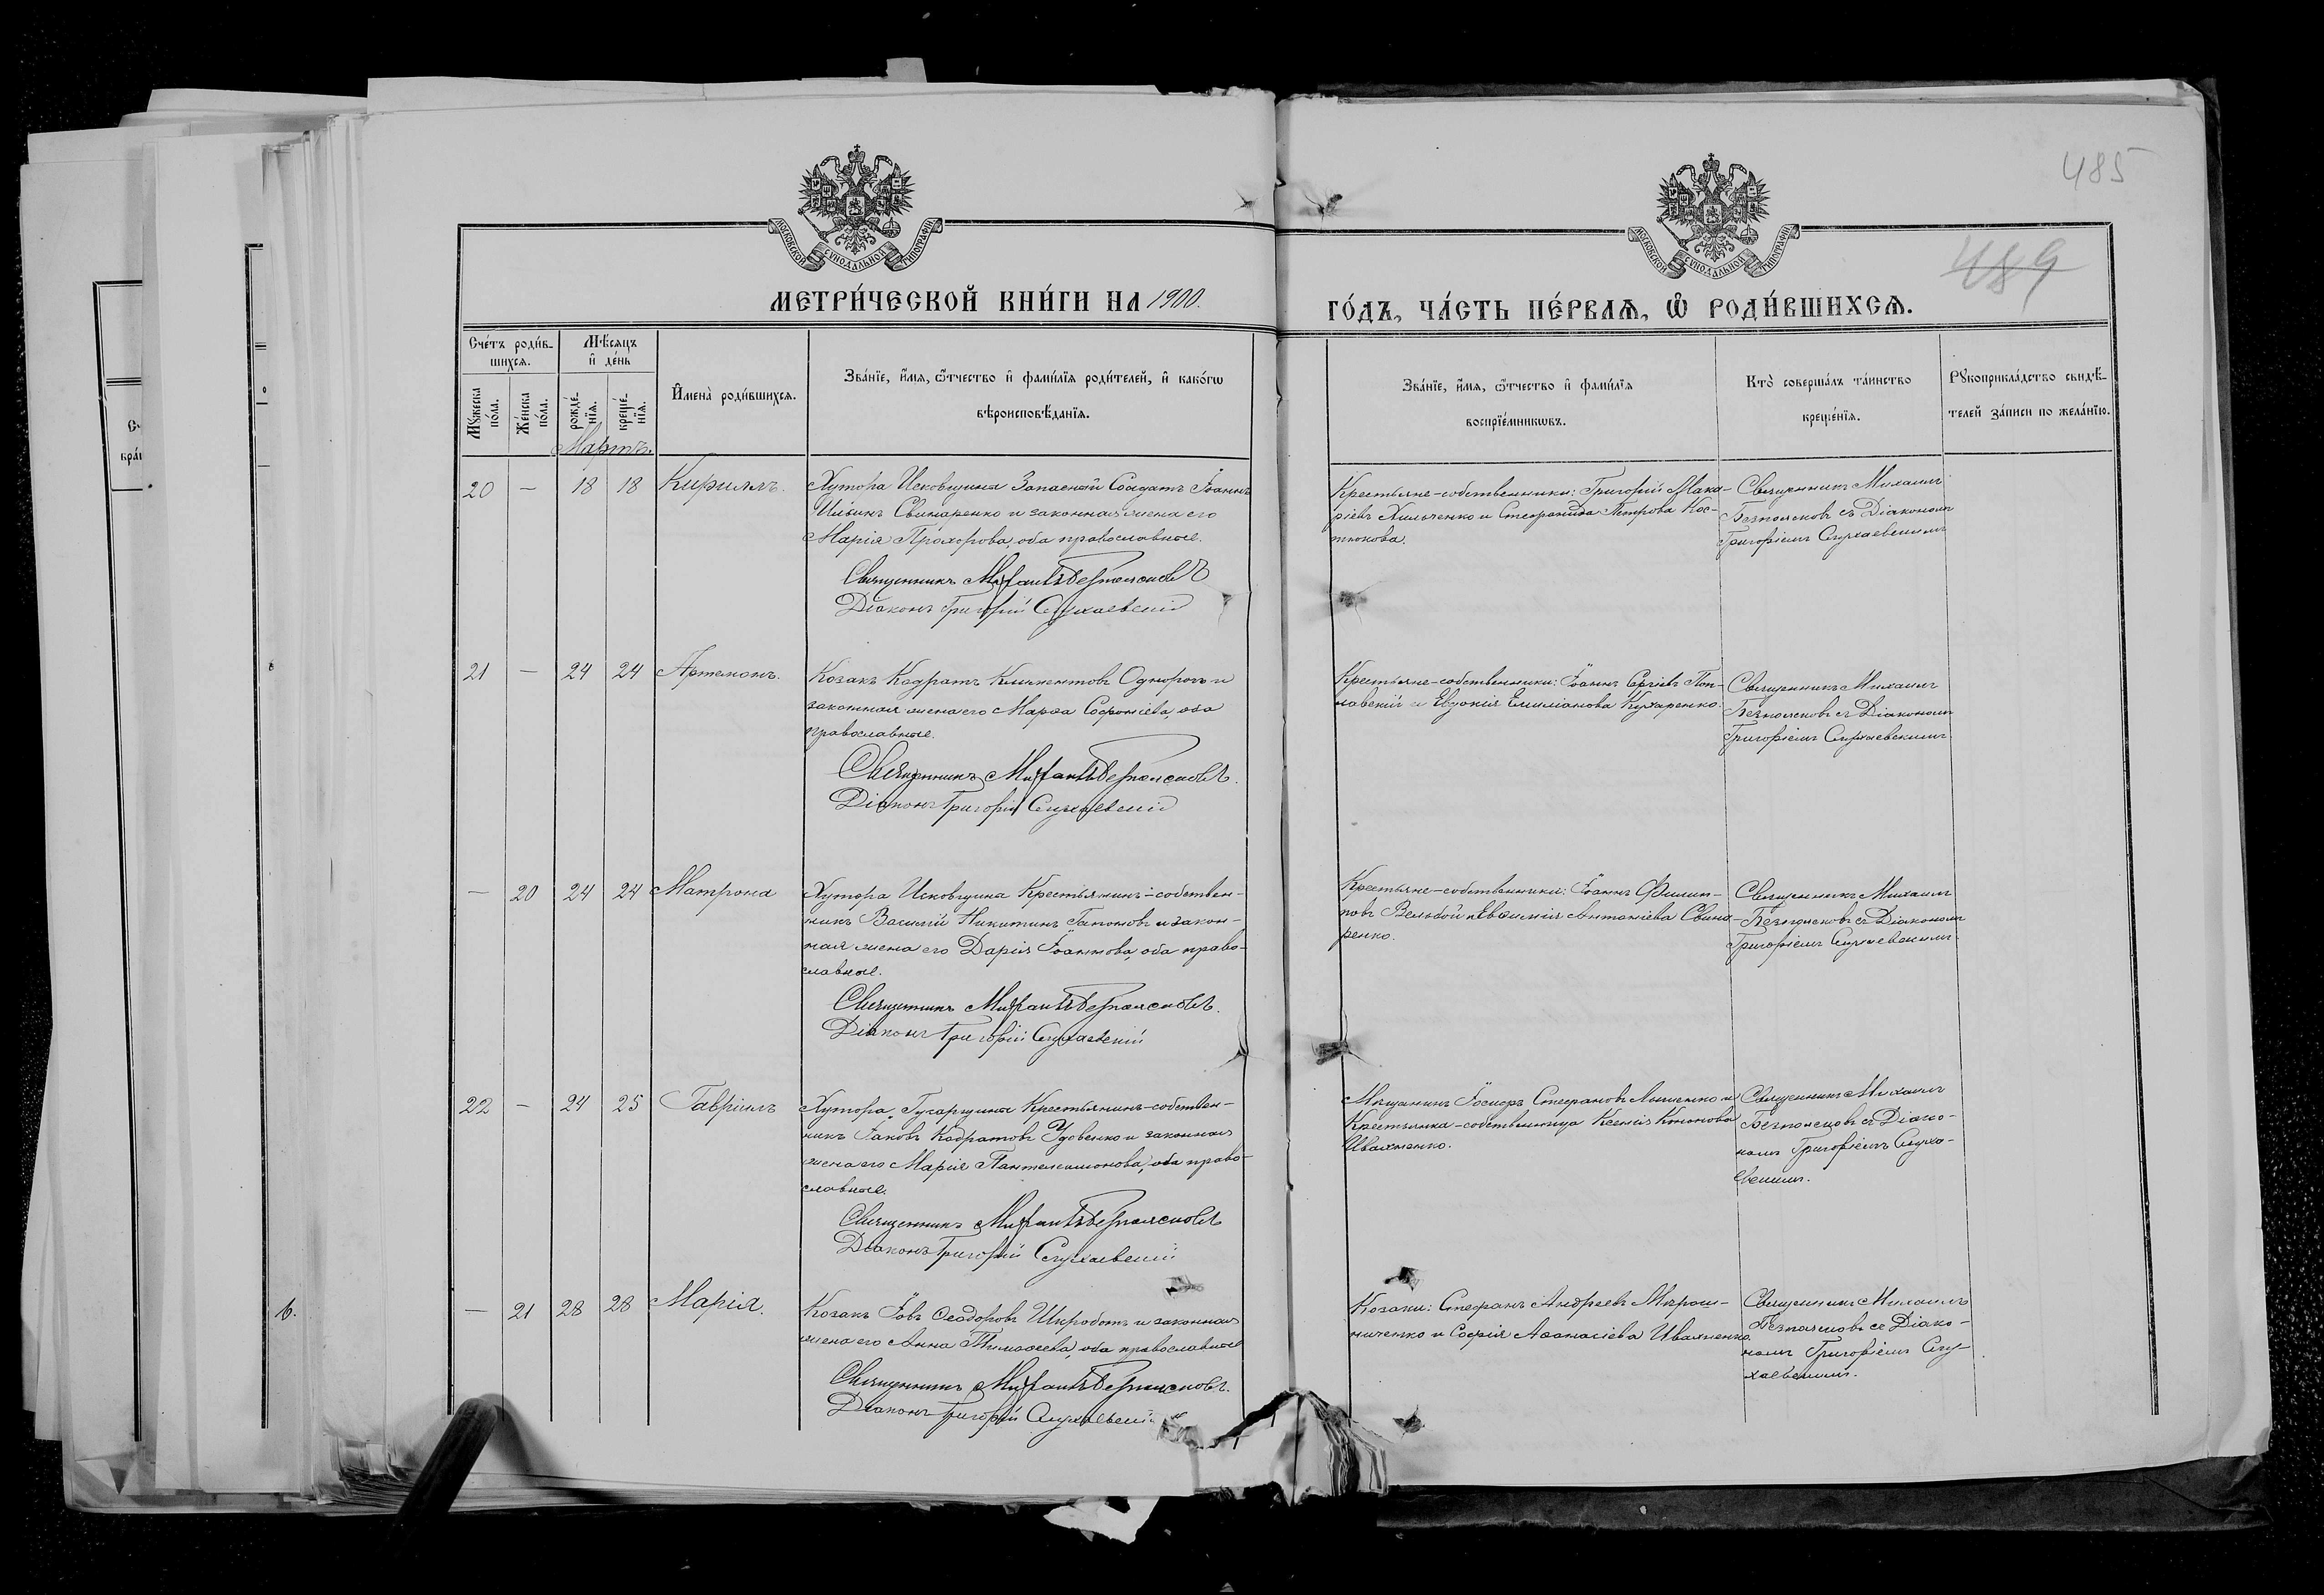 485
489
МОСКОВСКОЙ СѴНОДАЛЬНОЙ ТИПОГРАФІИ
МОСКОВСКОЙ СѴНОДАЛЬНОЙ ТИПОГРАФІИ
МЕТРИ́ЧЕСКОЙ КНИ́ГИ НА 1900.
ГО́ДЪ, ЧА́СТЬ ПЕ́РВАѦ, Ѡ҆ РОДИ́ВШИХСѦ.
Сче́тъ роди́в-
шихсѧ.
Мѣ́сѧцъ
и҆ де́нь
Мꙋ́жеска
по́ла.
Же́нска
по́ла.
рожде́-
нїѧ.
креще́-
нїѧ.
И҆мена̀ роди́вшихсѧ.
Зва́нїе, и҆́мѧ, ѻ҆́тчество и҆ фами́лїѧ роди́телей, и҆ како́гѡ
вѣроисповѣ́данїѧ.
Зва́нїе, и҆́мѧ, ѻ҆́тчество и҆ фами́лїѧ
воспрїе́мникѡвъ.
Кто̀ соверша́лъ та́инство
креще́нїѧ.
Рꙋкоприкла́дство свидѣ́-
телей за́писи по жела́нїю.
Мартъ.
20 — 18 18 Кириллъ.
Хутора Исковщина Запасный Солдатъ Іоаннъ
Ильинъ Свинаренко и законная жена его
Марія Прохорова, оба православные.
Священникъ Михаилъ Безпоясковъ
Діаконъ Григорій Слухаевскій
Крестьяне-собственники: Григорій Мака-
ріевъ Хильченко и Стефанида Петрова Кос-
тюкова.
Священникъ Михаилъ
Безпоясковъ съ Діакономъ
Григоріемъ Слухаевскимъ
21 — 24 24 Артемонъ.
Козакъ Кодратъ Климентовъ Однорогъ и
законная жена его Марфа Софоніева, оба
православные.
Священникъ Михаилъ Безпоясковъ.
Діаконъ Григорій Слухаевскій
Крестьяне-собственники: Іоаннъ Сергіевъ Поп-
лавскій и Евдокія Емиліанова Кухаренко.
Священникъ Михаилъ
Безпоясковъ съ Діакономъ
Григоріемъ Слухаевскимъ.
— 20 24 24 Матрона
Хутора Исковщина Крестьянинъ-собствен-
никъ Василій Никитинъ Гапоновъ и закон-
ная жена его Дарія Іоаннова, оба право-
славные.
Священникъ Михаилъ Безпоясковъ.
Діаконъ Григорій Слухаевскій
Крестьяне-собственники: Іоаннъ Филип-
повъ Вельбой и Евфимія Антоніева Свина-
ренко.
Священникъ Михаилъ
Безпоясковъ съ Діакономъ
Григоріемъ Слухаевскимъ.
22 — 24 25 Гавріилъ
Хутора Гусарщина Крестьянинъ-собствен-
никъ Іаковъ Кодратовъ Удовенко и законная
жена его Марія Пантелеимонова, оба право-
славные.
Священникъ Михаилъ Безпоясковъ
Діаконъ Григорій Слухаевскій
Мѣщанинъ Іосифъ Стефановъ и
Крестьянка-собственница Ксенія Кононова
Ивахненко.
Священникъ Михаилъ
Безпоясковъ съ Діако-
номъ Григоріемъ Слуха-
евскимъ.
— 21 28 28 Марія.
Козакъ Іовъ Ѳеодоровъ Шкроботъ и законная
жена его Анна Тимоѳеева, оба православные
Священникъ Михаилъ Безпоясковъ.
Діаконъ Григорій Слухаевскій
Козаки: Стефанъ Андреевъ Мірош-
ниченко и Софія Аѳанасіева Ивахненко.
Священникъ Михаилъ
Безпоясковъ съ Діако-
номъ Григоріемъ Слу-
хаевскимъ.